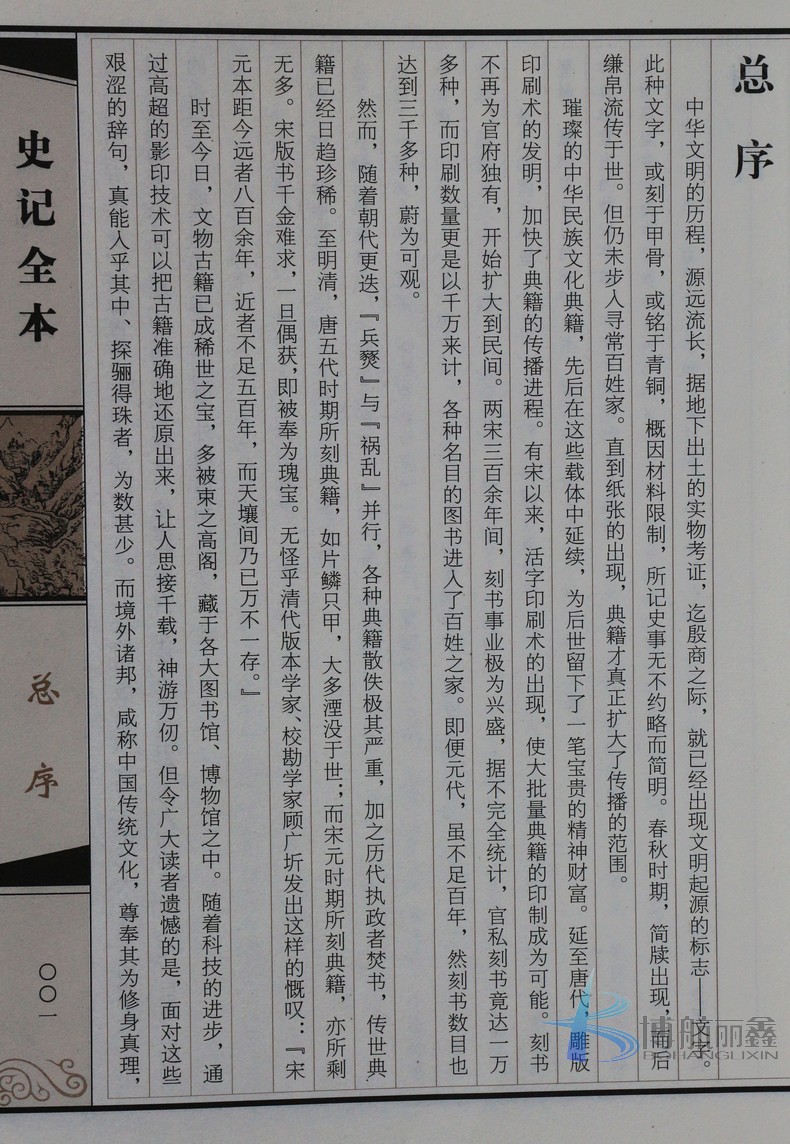 总序
中华文明的历程，源远流长，据地下出土的实物考证，迄殷商之际，就已经出现文明起源的标志——文字。
此种文字，或刻于甲骨，或铭于青铜，概因材料限制，所记史事无不约略而简明。春秋时期，简牍出现，而后
缣帛流传于世。但仍未步入寻常百姓家。直到纸张的出现，典籍才真正扩大了传播的范围。
璀璨的中华民族文化典籍，先后在这些载体中延续，为后世留下了一笔宝贵的精神财富。延至唐代，雕版
印刷术的发明，加快了典籍的传播进程。有宋以来，活字印刷术的出现，使大批量典籍的印制成为可能。刻书
不再为官府独有，开始扩大到民间。两宋三百余年间，刻书事业极为兴盛，据不完全统计，官私刻书竟达一万
多种，而印刷数量更是以千万来计，各种名目的图书进入了百姓之家。即便元代，虽不足百年，然刻书数目也
达到三千多种，蔚为可观。
然而，随着朝代更迭，『兵燹』与『祸乱』并行，各种典籍散佚极其严重，加之历代执政者焚书，传世典
籍已经日趋珍稀。至明清，唐五代时期所刻典籍，如片鳞只甲，大多湮没于世；而宋元时期所刻典籍，亦所剩
无多。宋版书千金难求，一旦偶获，即被奉为瑰宝。无怪乎清代版本学家、校勘学家顾广圻发出这样的慨叹：『宋
元本距今远者八百余年，近者不足五百年，而天壤间乃已万不一存。』
时至今日，文物古籍已成稀世之宝，多被束之高阁，藏于各大图书馆、博物馆之中。随着科技的进步，通
过高超的影印技术可以把古籍准确地还原出来，让人思接千载，神游万仞。但令广大读者遗憾的是，面对这些
艰涩的辞句，真能入乎其中、探骊得珠者，为数甚少。而境外诸邦，咸称中国传统文化，尊奉其为修身真理，
史记全本
总序
〇〇一
博航丽鑫
BOHANGLIXIN